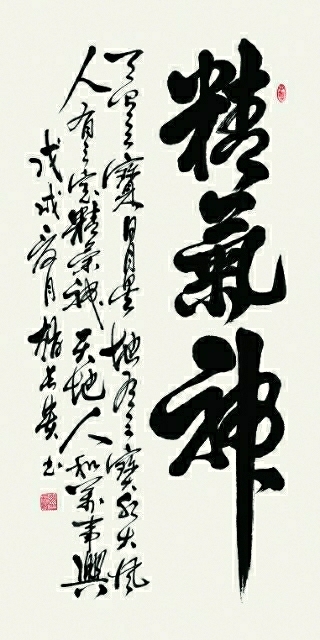 精氣神
天有三寶日月星地有三寶水火風
人有三宝精氣神天地人和萬事興
戊戌夏月書